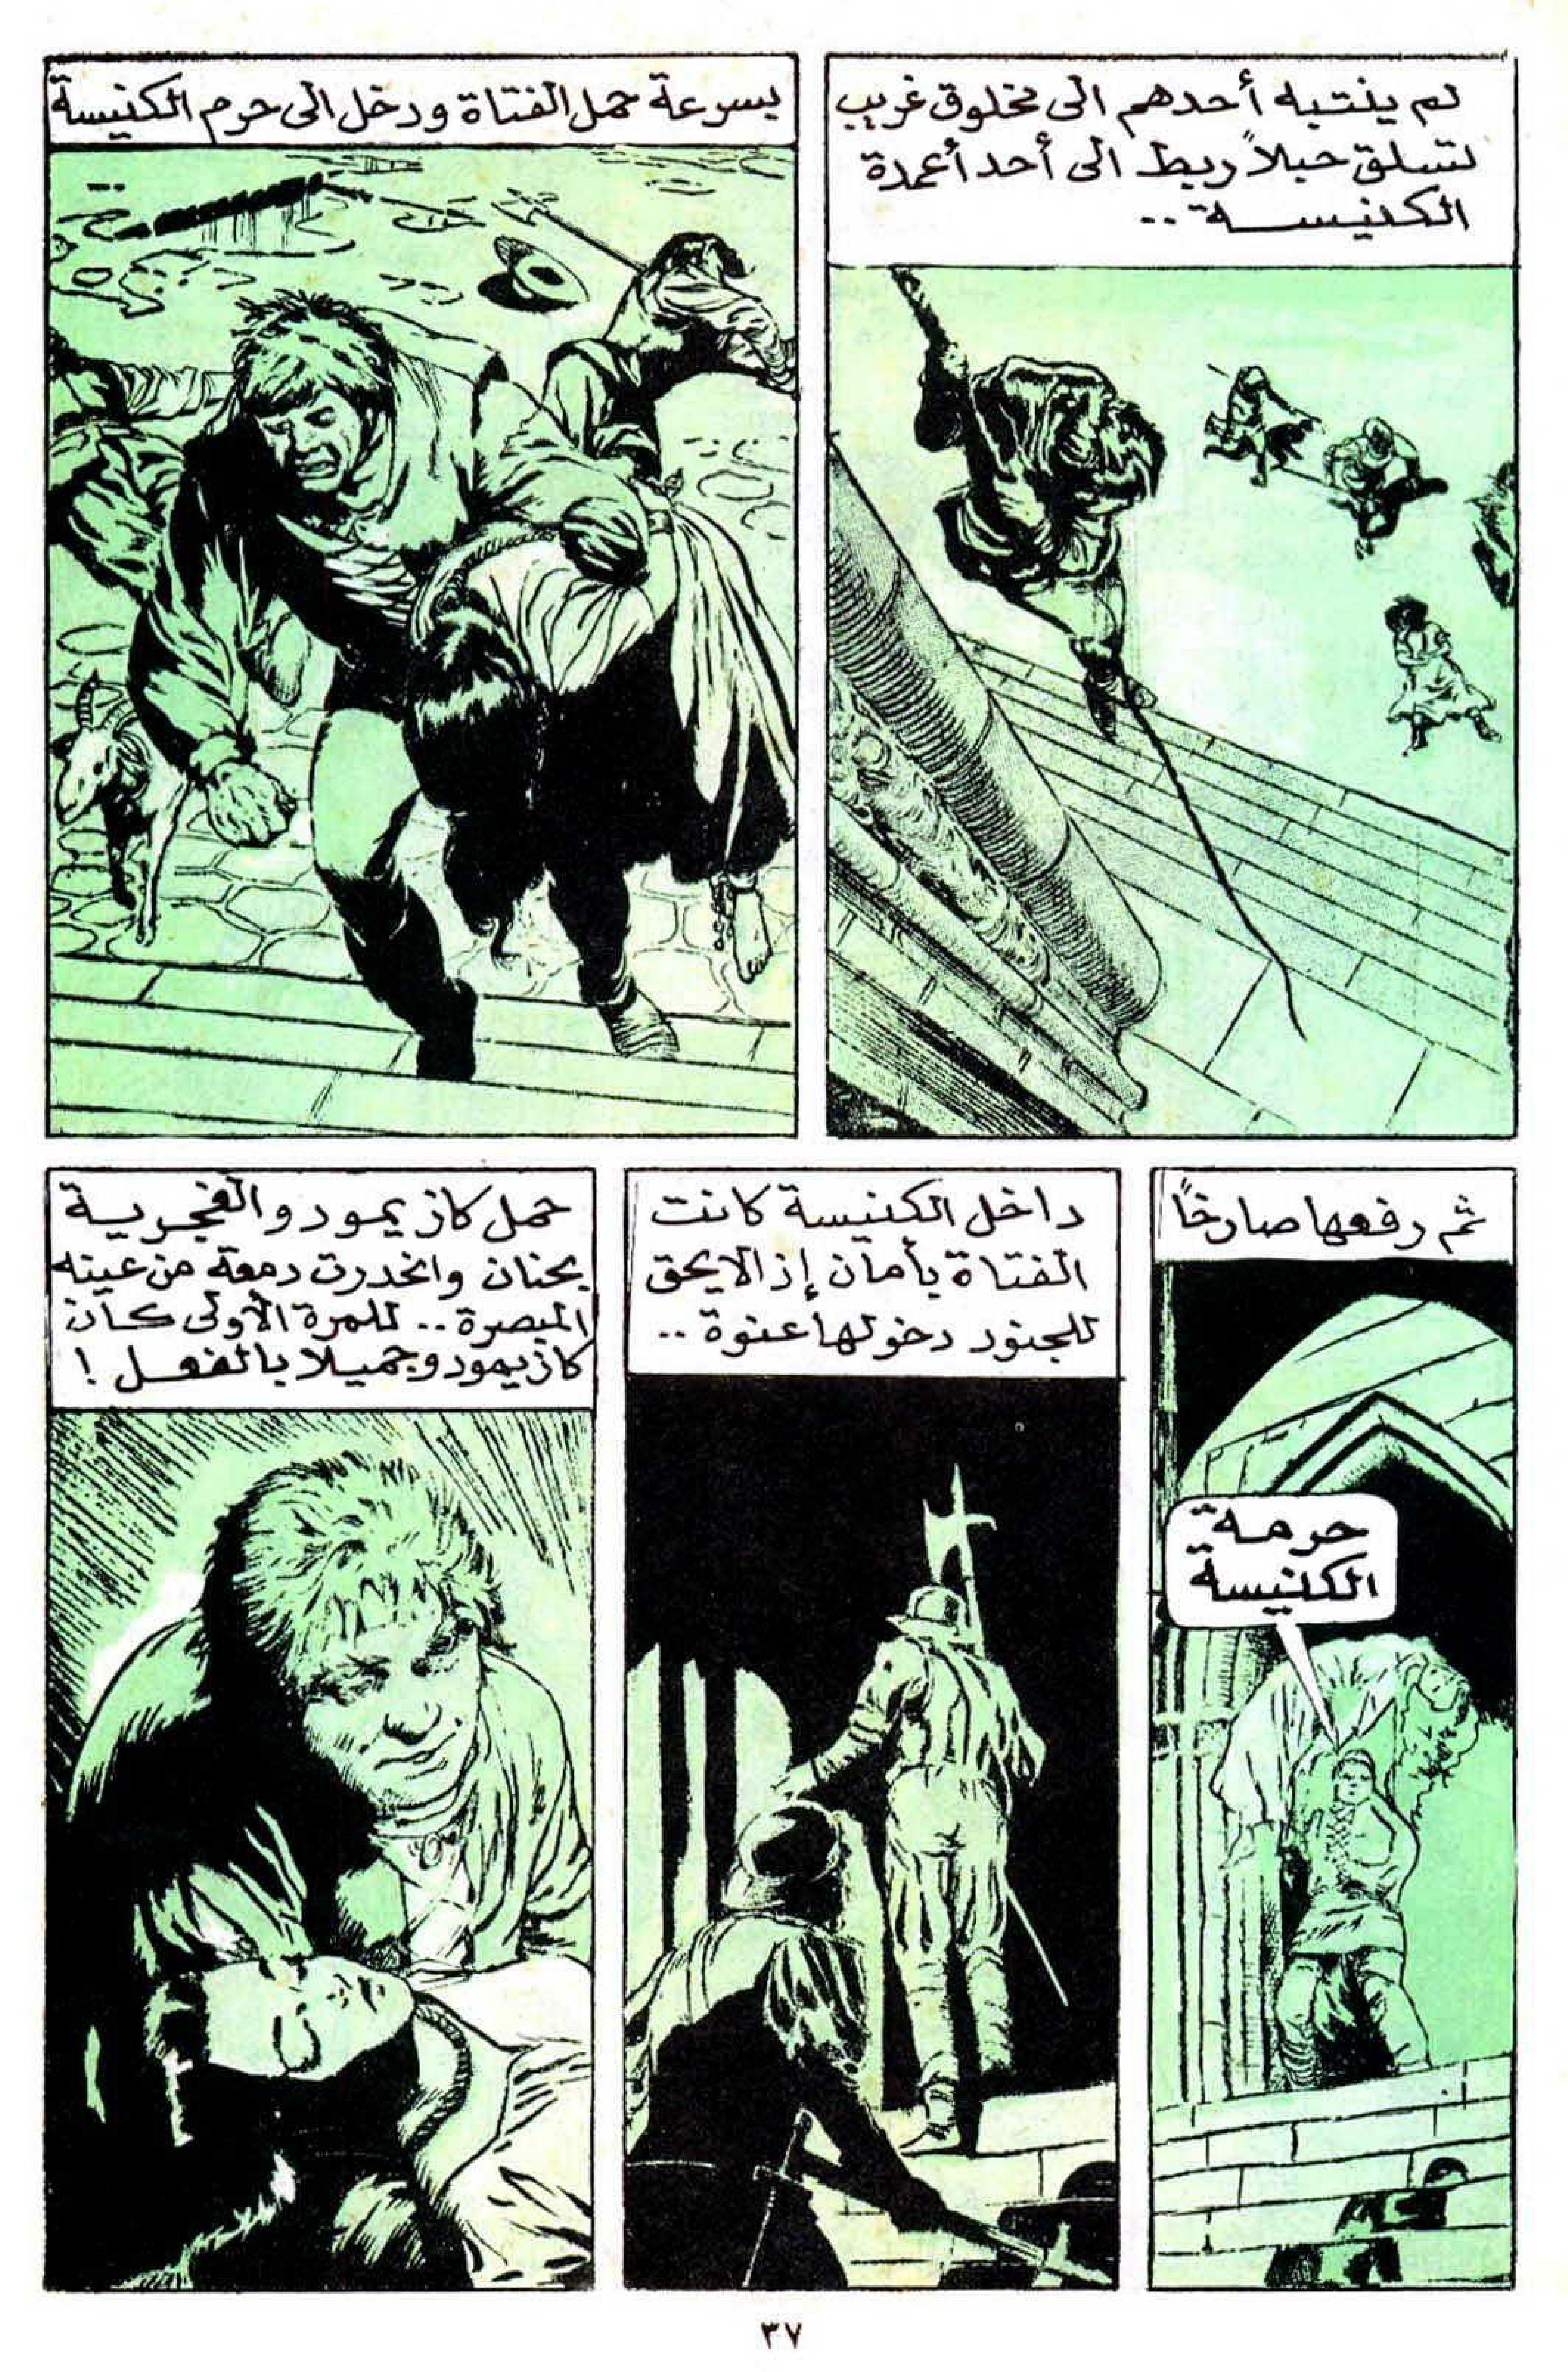 لم ينتبه أحدهم الى مخلوق غريب
تسلق حبلاً ربط الى أحد أعمدة
الكنيسة ..
بسرعة حمل الفتاة ودخل الى حرم الكنيسة
ثم رفعها صارخاً
حرمة
الكنيسة
داخل الكنيسة كانت
الفتاة بأمان إذ لا يحق
للجنود دخولها عنوة ..
حمل كازيمودو الغجرية
بحنان وانحدرت دمعة من عينه
المبصرة .. للمرة الأولى كان
كازيمودو جميلا بالفعل !
٣٧